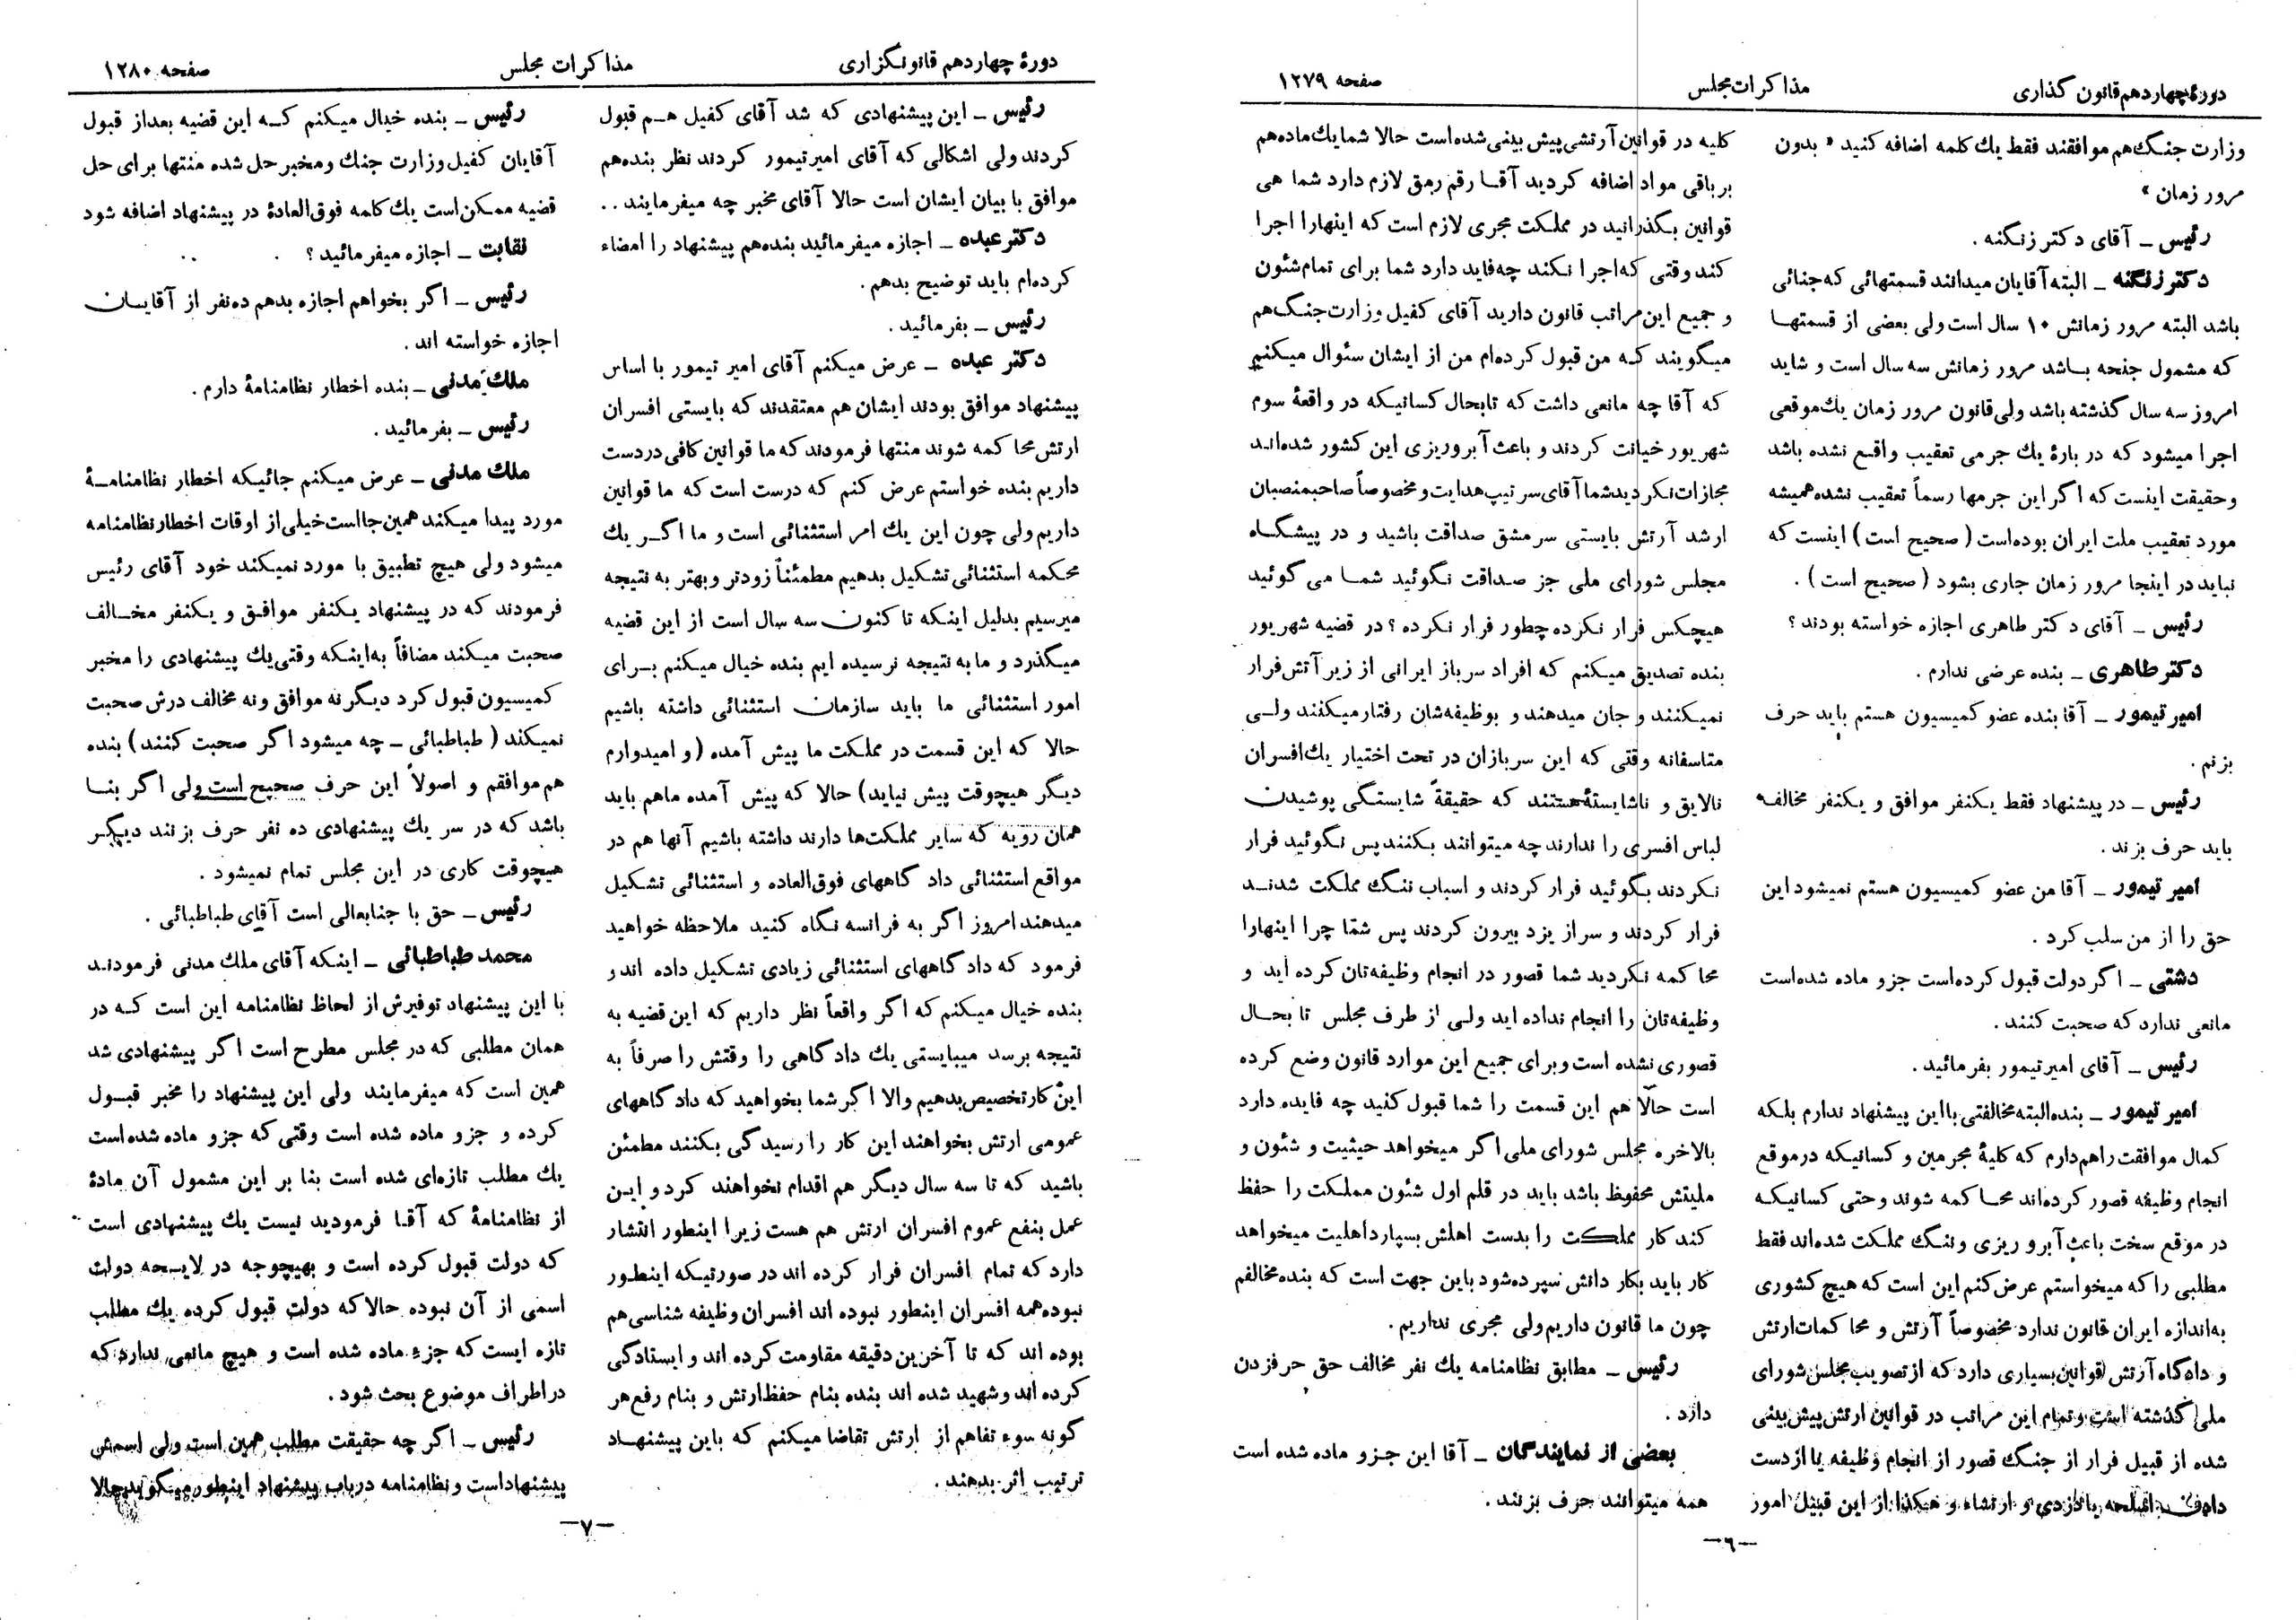 دورهٔ چهاردهم قانون گذاری
مذاکرات مجلس
صفحه ۱۲۷۹
وزارت جنگ هم موافقند فقط یك کلمه اضافه کنید « بدون
مرور زمان »
رئیس ــ آقای دکتر زنگنه .
دکتر زنگنه ــ البته آقایان میدانند قسمتهائی که جنائی
باشد البته مرور زمانش ۱۰ سال است ولی بعضی از قسمتها
که مشمول جنحه باشد مرور زمانش سه سال است و شاید
امروز سه سال گذشته باشد ولی قانون مرور زمان یك موقعی
اجرا میشود که در بارهٔ یك جرمی تعقیب واقع نشده باشد
وحقیقت اینست که اگر این جرمها رسماً تعقیب نشده همیشه
مورد تعقیب ملت ایران بوده است ( صحیح است ) اینست که
نباید در اینجا مرور زمان جاری بشود ( صحیح است ) .
رئیس ــ آقای دکتر طاهری اجازه خواسته بودند ؟
دکتر طاهری ــ بنده عرضی ندارم .
امیر تیمور ــ آقا بنده عضو کمیسیون هستم باید حرف
بزنم .
رئیس ــ در پیشنهاد فقط یکنفر موافق و یکنفر مخالف
باید حرف بزند .
امیر تیمور ــ آقا من عضو کمیسیون هستم نمیشود این
حق را از من سلب کرد .
دشتی ــ اگر دولت قبول کرده است جزو ماده شده است
مانعی ندارد که صحبت کنند .
رئیس ــ آقای امیر تیمور بفرمائید .
امیر تیمور ــ بنده البته مخالفتی با این پیشنهاد ندارم بلکه
کمال موافقت را هم دارم که کلیهٔ مجرمین و کسانیکه در موقع
انجام وظیفه قصور کرده‌اند محاکمه شوند وحتی کسانیکه
در موقع سخت باعث آبرو ریزی و ننگ مملکت شده‌اند فقط
مطلبی را که میخواستم عرض کنم این است که هیچ کشوری
به اندازه ایران قانون ندارد مخصوصاً آرتش و محاکمات ارتش
و دادگاه آرتش قوانین بسیاری دارد که از تصویب مجلس شورای
ملی گذشته است و تمام این مراتب در قوانین ارتش پیش بینی
شده از قبیل فرار از جنگ قصور از انجام وظیفه یا از دست
دادن اسلحه یا دزدی و ارتشاء و هکذا از این قبیل امور
کلیه در قوانین آرتشی پیش بینی شده است حالا شما یك ماده هم
بر باقی مواد اضافه کردید آقا رقم رمق لازم دارد شما هی
قوانین بگذرانید در مملکت مجری لازم است که اینها را اجرا
کند وقتی که اجرا نکند چه فاید دارد شما برای تمام شئون
و جمیع این مراتب قانون دارید آقای کفیل وزارت جنگ هم
میگویند که من قبول کرده‌ام من از ایشان سئوال میکنم
که آقا چه مانعی داشت که تابحال کسانیکه در واقعهٔ سوم
شهریور خیانت کردند و باعث آبروریزی این کشور شده‌اند
مجازات نکردید شما آقای سرتیپ هدایت و مخصوصاً صاحبمنصبان
ارشد آرتش بایستی سرمشق صداقت باشید و در پیشگاه
مجلس شورای ملی جز صداقت نگوئید شما می گوئید
هیچکس فرار نکرده چطور فرار نکرده ؟ در قضیه شهریور
بنده تصدیق میکنم که افراد سرباز ایرانی از زیر آتش فرار
نمیکنند و جان میدهند و بوظیفه‌شان رفتار میکنند ولی
متاسفانه وقتی که این سربازان در تحت اختیار یك افسران
نالایق و ناشایستهٔ هستند که حقیقةً شایستگی پوشیدن
لباس افسری را ندارند چه میتوانند بکنند پس نگوئید فرار
نکردند بگوئید فرار کردند و اسباب ننگ مملکت شدند
فرار کردند و سر از یزد بیرون کردند پس شما چرا اینهارا
محاکمه نکردید شما قصور در انجام وظیفه‌تان کرده اید و
وظیفه‌تان را انجام نداده اید ولی از طرف مجلس تا بحال
قصوری نشده است وبرای جمیع این موارد قانون وضع کرده
است حالا هم این قسمت را شما قبول کنید چه فایده دارد
بالاخره مجلس شورای ملی اگر میخواهد حیثیت و شئون و
ملیتش محفوظ باشد باید در قلم اول شئون مملکت را حفظ
کند کار مملکت را بدست اهلش بسپارد اهلیت میخواهد
کار باید بکار دانش سپرده شود باین جهت است که بنده مخالفم
چون ما قانون داریم ولی مجری نداریم .
رئیس ــ مطابق نظامنامه یك نفر مخالف حق حرفزدن
دارد .
بعضی از نمایندگان ــ آقا این جزو ماده شده است
همه میتوانند حرف بزنند .
ــ ٦ ــ
دورهٔ چهاردهم قانونگزاری
مذاکرات مجلس
صفحه ۱۲۸۰
رئیس ــ این پیشنهادی که شد آقای کفیل هم قبول
کردند ولی اشکالی که آقای امیر تیمور کردند نظر بنده هم
موافق با بیان ایشان است حالا آقای مخبر چه میفرمایند ..
دکتر عبده ــ اجازه میفرمائید بنده هم پیشنهاد را امضاء
کرده‌ام باید توضیح بدهم .
رئیس ــ بفرمائید .
دکتر عبده ــ عرض میکنم آقای امیر تیمور با اساس
پیشنهاد موافق بودند ایشان هم معتقدند که بایستی افسران
ارتش محاکمه شوند منتها فرمودند که ما قوانین کافی در دست
داریم بنده خواستم عرض کنم که درست است که ما قوانین
داریم ولی چون این یك امر استثنائی است و ما اگر یك
محکمه استثنائی تشکیل بدهیم مطمئناً زودتر و بهتر به نتیجه
میرسیم بدلیل اینکه تا کنون سه سال است از این قضیه
میگذرد و ما به نتیجه نرسیده ایم بنده خیال میکنم برای
امور استثنائی ما باید سازمان استثنائی داشته باشیم
حالا که این قسمت در مملکت ما پیش آمده (و امیدوارم
دیگر هیچوقت پیش نیاید) حالا که پیش آمده ماهم باید
همان رویه که سایر مملکت‌ها دارند داشته باشیم آنها هم در
مواقع استثنائی داد گاههای فوق‌العاده و استثنائی تشکیل
میدهند امروز اگر به فرانسه نگاه کنید ملاحظه خواهید
فرمود که داد گاههای استثنائی زیادی تشکیل داده اند و
بنده خیال میکنم که اگر واقعاً نظر داریم که این قضیه به
نتیجه برسد میبایستی یك داد گاهی را وقتش را صرفاً به
این کار تخصیص بدهیم والا اگر شما بخواهید که داد گاههای
عمومی ارتش بخواهند این کار را رسیدگی بکنند مطمئن
باشید که تا سه سال دیگر هم اقدام نخواهند کرد و این
عمل بنفع عموم افسران ارتش هم هست زیرا اینطور انتشار
دارد که تمام افسران فرار کرده اند در صورتیکه اینطور
نبوده همه افسران اینطور نبوده اند افسران وظیفه شناسی هم
بوده اند که تا آخرین دقیقه مقاومت کرده اند و ایستادگی
کرده اند و شهید شده اند بنده بنام حفظ ارتش و بنام رفع هر
گونه سوء تفاهم از ارتش تقاضا میکنم که باین پیشنهاد
ترتیب اثر بدهند .
رئیس ــ بنده خیال میکنم که این قضیه بعد از قبول
آقایان کفیل وزارت جنك ومخبر حل شده منتها برای حل
قضیه ممکن است یك کلمه فوق‌العادهٔ در پیشنهاد اضافه شود
نقابت ــ اجازه میفرمائید ؟
رئیس ــ اگر بخواهم اجازه بدهم ده نفر از آقایان
اجازه خواسته اند .
ملك مدنی ــ بنده اخطار نظامنامهٔ دارم .
رئیس ــ بفرمائید .
ملك مدنی ــ عرض میکنم جائیکه اخطار نظامنامهٔ
مورد پیدا میکند همین جا است خیلی از اوقات اخطار نظامنامه
میشود ولی هیچ تطبیق با مورد نمیکند خود آقای رئیس
فرمودند که در پیشنهاد یکنفر موافق و یکنفر مخالف
صحبت میکند مضافاً به اینکه وقتی یك پیشنهادی را مخبر
کمیسیون قبول کرد دیگر نه موافق و نه مخالف درش صحبت
نمیکند ( طباطبائی ــ چه میشود اگر صحبت کنند ) بنده
هم موافقم و اصولاً این حرف صحیح است ولی اگر بنا
باشد که در سر یك پیشنهادی ده نفر حرف بزنند دیگر
هیچوقت کاری در این مجلس تمام نمیشود .
رئیس ــ حق با جنابعالی است آقای طباطبائی .
محمد طباطبائی ــ اینکه آقای ملك مدنی فرمودند
با این پیشنهاد توفیرش از لحاظ نظامنامه این است که در
همان مطلبی که در مجلس مطرح است اگر پیشنهادی شد
همین است که میفرمایند ولی این پیشنهاد را مخبر قبول
کرده و جزو ماده شده است وقتی که جزو ماده شده است
یك مطلب تازه‌ای شده است بنا بر این مشمول آن مادهٔ
از نظامنامهٔ که آقا فرمودید نیست یك پیشنهادی است
که دولت قبول کرده است و بهیچوجه در لایحه دولت
اسمی از آن نبوده حالا که دولت قبول کرده یك مطلب
تازه ایست که جزء ماده شده است و هیچ مانعی ندارد که
در اطراف موضوع بحث شود .
رئیس ــ اگر چه حقیقت مطلب همین است ولی اسمش
پیشنهاد است و نظامنامه در باب پیشنهاد اینطور میگوید حالا
ــ ۷ ــ